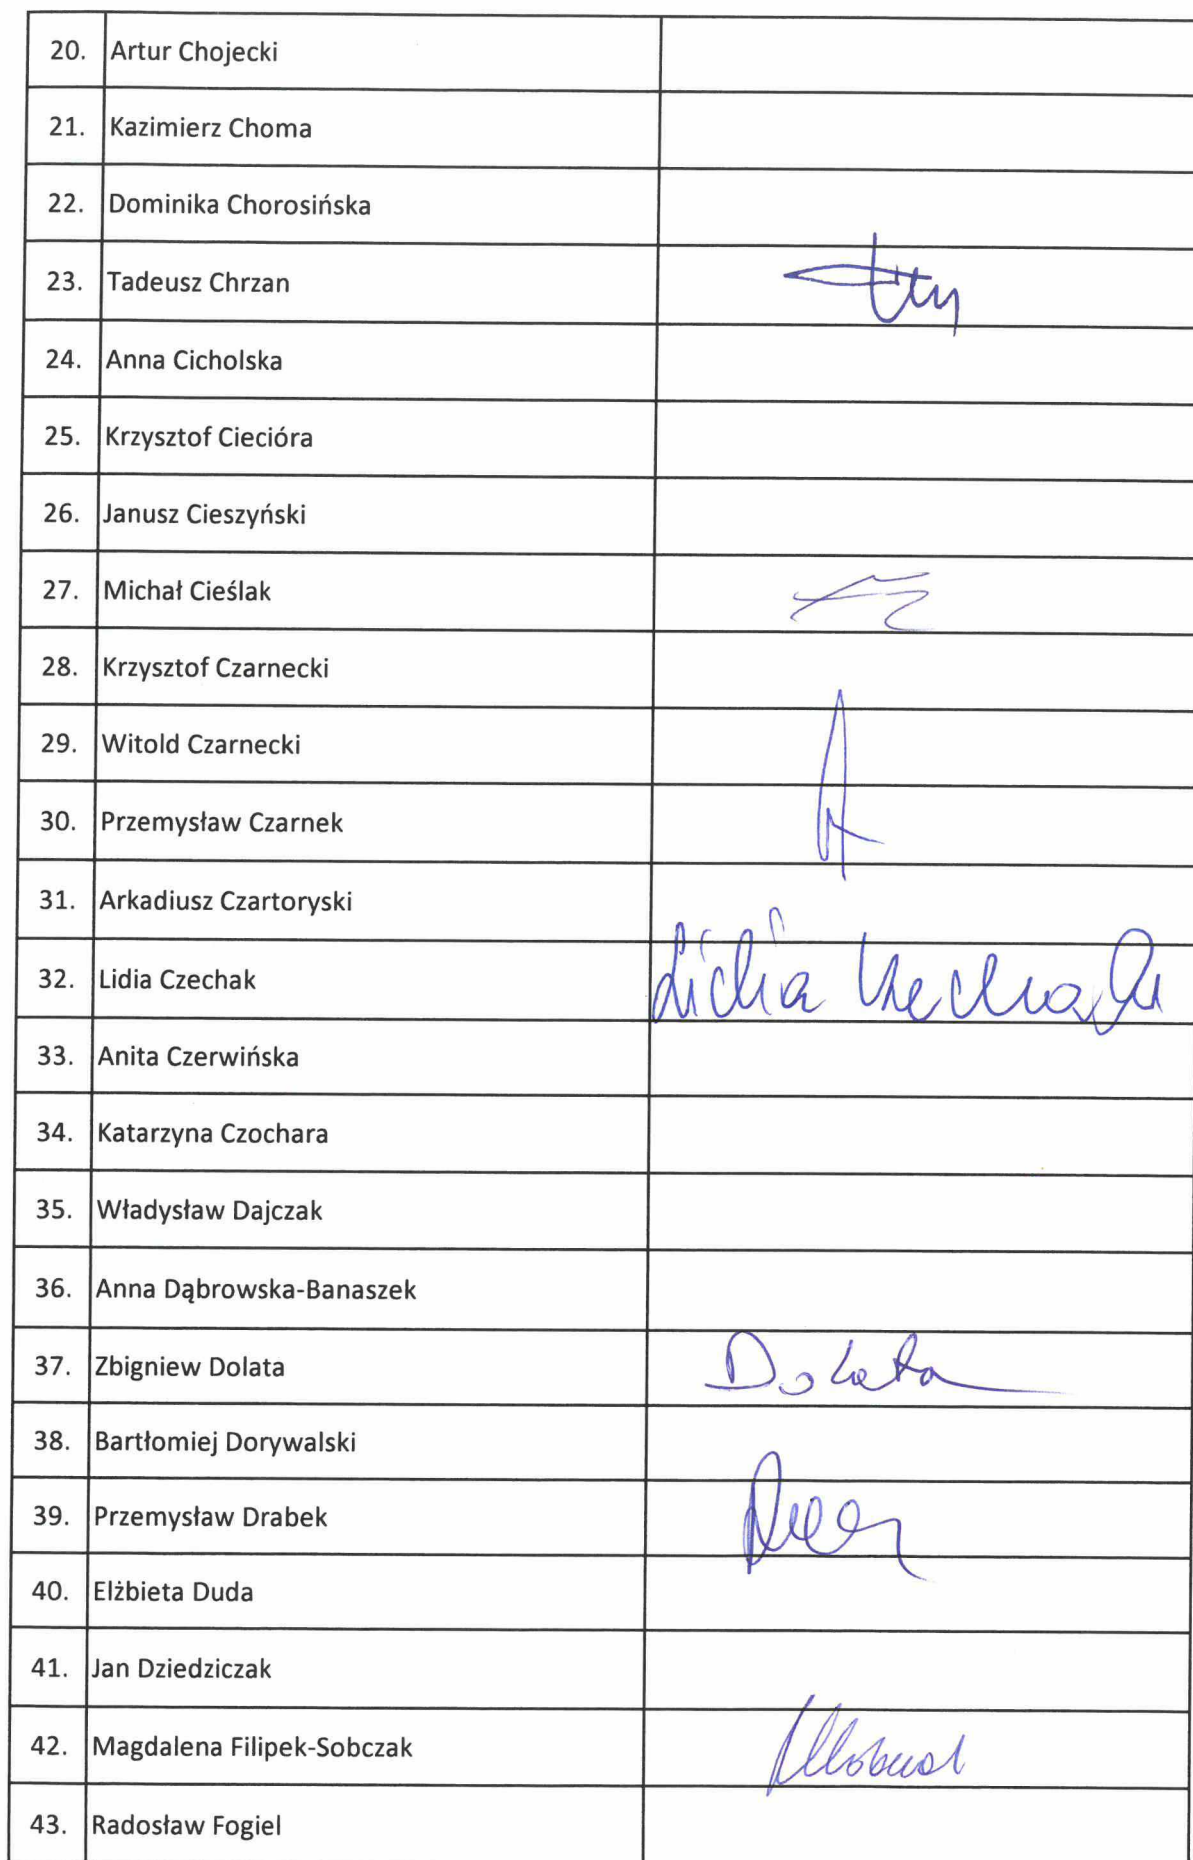 20. Artur Chojecki
21. Kazimierz Choma
22. Dominika Chorosińska
23. Tadeusz Chrzan
24. Anna Cicholska
25. Krzysztof Ciecióra
26. Janusz Cieszyński
27. Michał Cieślak
28. Krzysztof Czarnecki
29. Witold Czarnecki
30. Przemysław Czarnek
31. Arkadiusz Czartoryski
32. Lidia Czechak Lidia Czechak
33. Anita Czerwińska
34. Katarzyna Czochara
35. Władysław Dajczak
36. Anna Dąbrowska-Banaszek
37. Zbigniew Dolata Dolata
38. Bartłomiej Dorywalski
39. Przemysław Drabek
40. Elżbieta Duda
41. Jan Dziedziczak
42. Magdalena Filipek-Sobczak
43. Radosław Fogiel